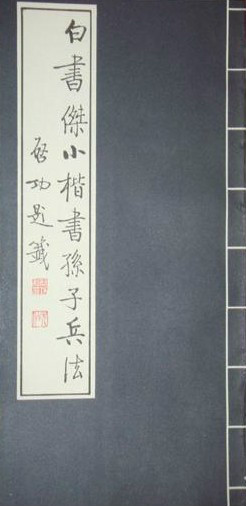 白書傑小楷書孫子兵法
啟功題籤